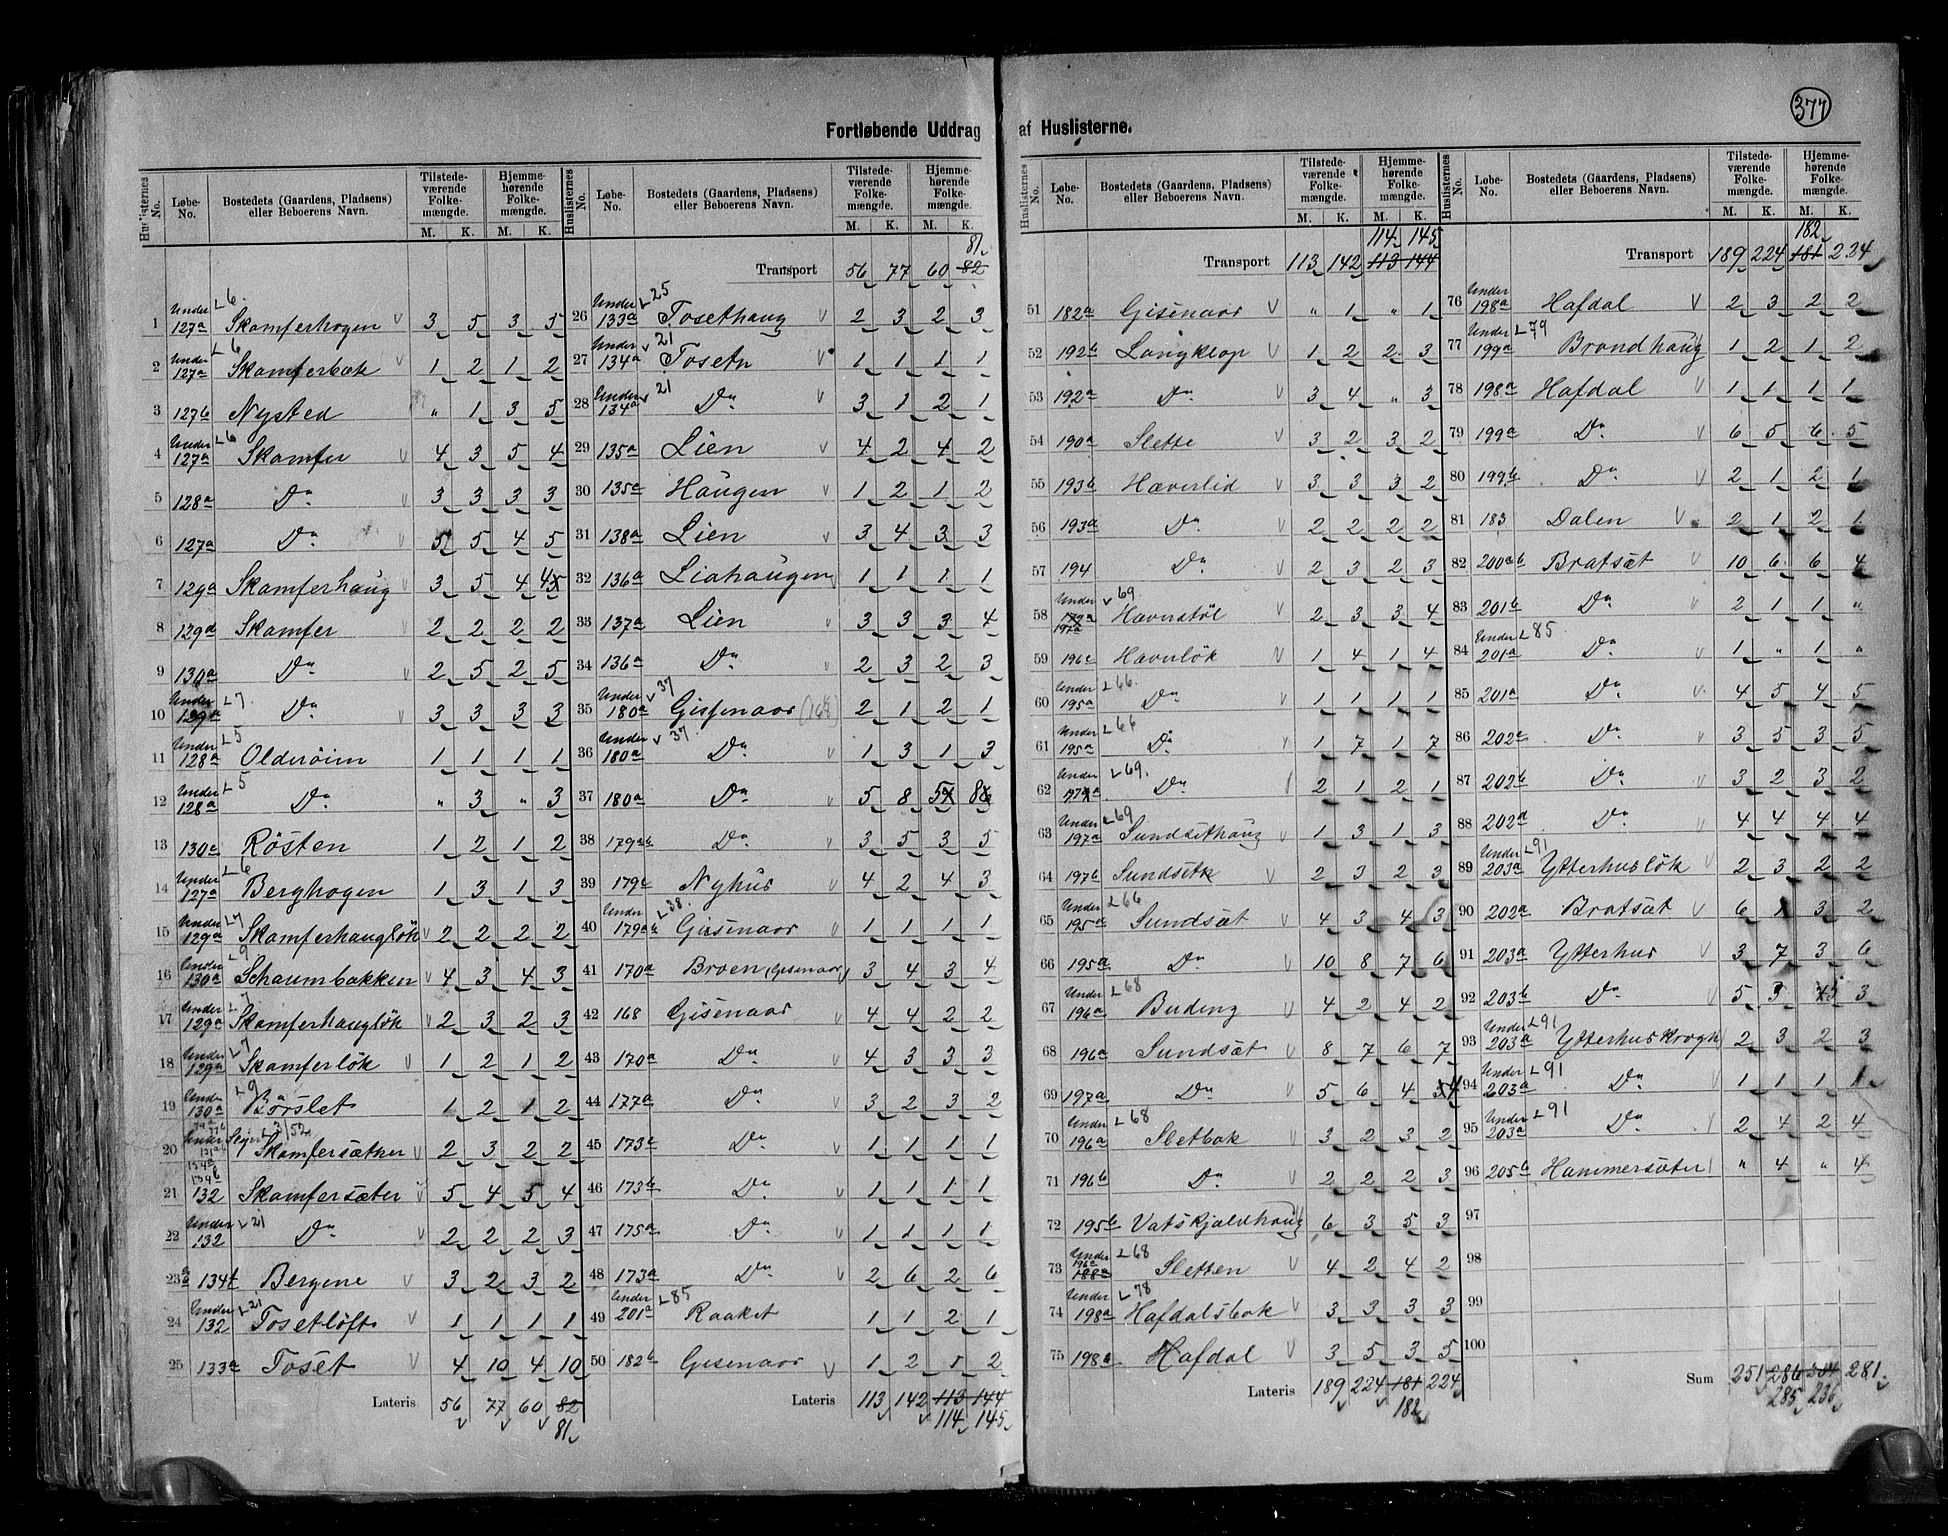 377
Fortløbende Uddrag af Huslisterne.
Huslisternes No. Løbe-No. Bostedets (Gaardens, Pladsens) eller Beboerens Navn. Tilstedeværende Folkemængde. M. K. Hjemmehørende Folkemængde. M. K.
1 Under 127a L 6. Skamferhogen V 3 5 3 5
2 Under 127a L 6 Skamferbæk V 1 2 1 2
3 127b Nysted " 1 3 5
4 Under 127a L 6 Skamfer V 4 3 5 4
5 128a Do V 3 3 3 3
6 127a Do V 5 5 4 5
7 129a Skamferhaug V 3 5 4 4
8 129d Skamfer V 2 2 2 2
9 130a Do V 2 5 2 5
10 Under 129a L 7. Do V 3 3 3 3
11 Under 128a L 5 Olderöien 1 1 1 1
12 Under 128a L 5 Do " 3 " 3
13 130c Rösten 1 2 1 2
14 Under 127a L 6 Berghogen 1 3 1 3
15 Under 129a L 7 Skamferhauglök V 2 2 2 2
16 Under 130a L 9 Schaumbakken V 4 3 4 3
17 Under 129a L 7 Skamferhauglök V 2 3 2 3
18 Under 129a L 7 Skamferlök V 1 2 1 2
19 Under 130a L 9 Börslet 1 2 1 2
20 Under Skamfersæther V 2 3 2 2
21 132 Skamfersæter V 5 4 5 4
22 Under 132 L 21 Do V 2 2 2 3
23 134b Bergene V 3 2 3 2
24 Under 132 L 21 Tosetlöft V 1 1 1 1
25 133a Toset V 4 10 4 10
Lateris 56 77 60 82
81
81
Transport 56 77 60 82
26 Under 133a L 25 Tosethaug V 2 3 2 3
27 Under 134a V 21 Toseth V 1 1 1 1
28 Under 134a V 21 Do V 3 1 2 1
29 135a Lien V 4 2 4 2
30 135a Haugen V 1 2 1 2
31 138a Lien V 3 4 3 3
32 136a Liahaugen 1 1 1 1
33 137a Lien V 3 3 3 4
34 136a Do V 2 3 2 3
35 Under 180a V 37 Gisenaas (168) 2 1 2 1
36 Under 180a V 37. Do V 1 3 1 3
37 180a Do V 5 8 5 8
38 179ab Do V 3 5 3 5
39 179b Nyhus V 4 2 4 3
40 Under 179ab L 38. Gisenaas V 1 1 1 1
41 170a Broen (Gisenaas) 3 4 3 4
42 168 Gisenaas V 4 4 2 2
43 170a Do V 4 3 3 3
44 177a Do V 3 2 3 2
45 173a Do V 1 1 1 1
46 173b Do V 1 1 1 1
47 175a Do V 1 1 1 1
48 173a Do V 2 6 2 6
49 Under 201a L 85 Raaket 1 1 2 1
50 182b Gisenaas V 1 2 1 2
Lateris 113 142 113 144
114 145
Huslisternes No. Løbe-No. Bostedets (Gaardens, Pladsens) eller Beboerens Navn. Tilstedeværende Folkemængde. M. K. Hjemmehørende Folkemængde. M. K.
114 145
Transport 113 142 113 144
51 182a Gisenaas V " 1 " 1
52 192b Langklop V 1 2 2 3
53 192a Do V 3 4 " 3
54 190a Slette V 3 2 3 2
55 193b Hæverlid V 3 3 3 2
56 193a Do V 2 2 2 2
57 194 Do V 2 3 2 3
58 Under 197a V 69 Hæverstöl V 2 3 3 4
59 196c Hæverlök V 1 4 1 4
60 Under 195a L 66. Do V 1 1 1 1
61 Under 195a L 66 Do V 1 7 1 7
62 Under 197a L 69. Do 2 1 2 1
63 Under 197a L 69 Sundsethaug V 1 3 1 3
64 197b Sundsetk V 2 3 2 3
65 Under 195a L 66 Sundsæt V 4 3 4 3
66 195a Do V 10 8 7 6
67 Under 196a L 68 Buding V 4 2 4 2
68 196a Sundsæt V 8 7 6 7
69 197a Do V 5 6 4 4
70 Under 196a L 68 Sletbak V 3 2 3 2
71 196b Do V 2 2 2 3
72 195b Vatskjældhaug 6 3 5 3
73 Under 196a 188a L 68 Sletten V 4 2 4 2
74 Under 198a L 78 Hafdalsbak V 3 3 3 3
75 198a Hafdal V 3 5 3 5
Lateris 189 224 181 224
182
182
Transport 189 224 181 224
76 Under 198a Hafdal V 2 3 2 2
77 Under 199a L 79 Brandhaug 1 2 1 2
78 198a Hafdal V 1 1 1 1
79 199a Do V 6 5 6 5
80 199b Do V 2 1 2 1
81 183 Dalen V 2 1 2 1
82 200ab Bratsæt V 10 6 6 4
83 201b Do V 2 1 1 "
84 Under 201a L 85. Do V 1 " 1 "
85 201a Do V 4 5 4 5
86 202c Do V 3 5 3 5
87 202b Do V 3 2 3 2
88 202d Do V 4 4 4 4
89 Under 203a L 91 Ytterhuslök V 2 3 2 2
90 202a Bratsæt V 6 1 3 2
91 203a Ytterhus V 3 7 3 6
92 203b Do V 5 3 5 3
93 Under 203a L 91 Ytterhuskrogh 2 3 2 3
94 Under 203a L 91 Do V 1 1 1 1
95 Under 203a L 91 Do V 2 4 2 4
96 205b Hammersæter V " 4 " 4
97
98
99
100
Sum 251 286 281
285 236